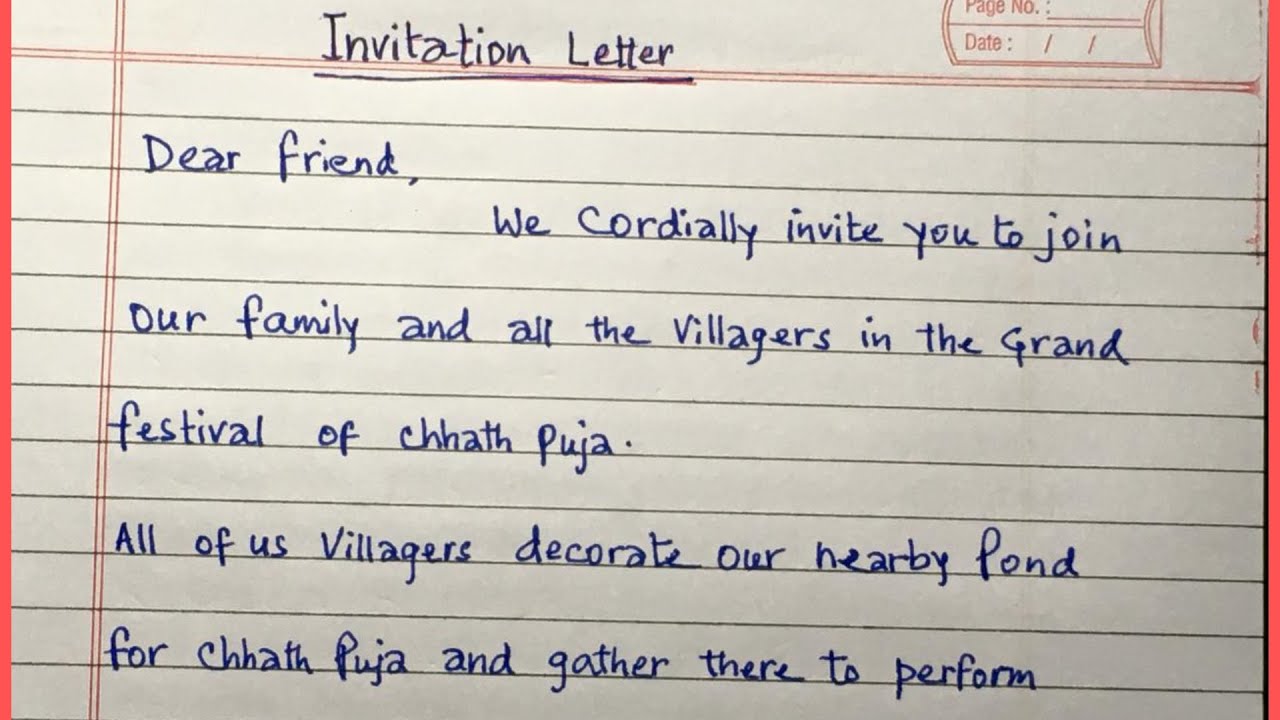 Page No. :
Date : / /
Invitation Letter
Dear friend,
We Cordially invite you to join
our family and all the Villagers in the Grand
festival of chhath puja.
All of us Villagers decorate our nearby Pond
for chhath Puja and gather there to perform